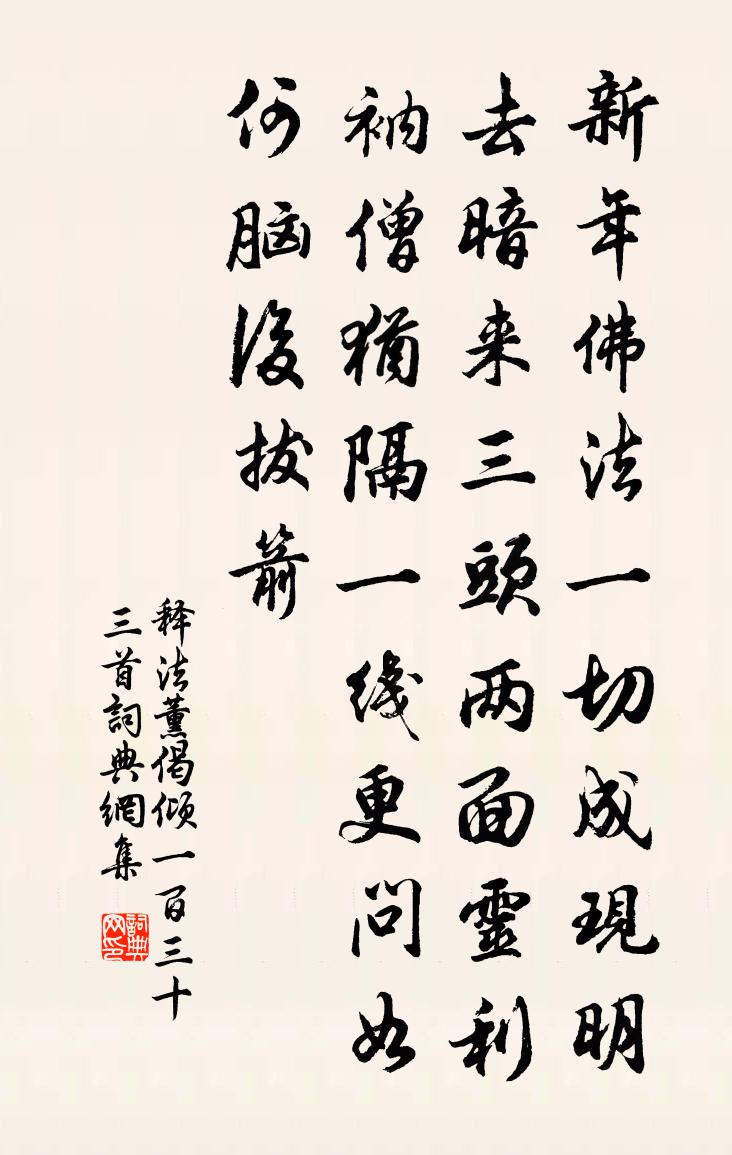 新年佛法一切成現明
去暗来三頭两面靈利
衲僧猶隔一綫更问如
何脑後拔箭
释法薰偈倾一百三十
三首詞典網集
詞典网印